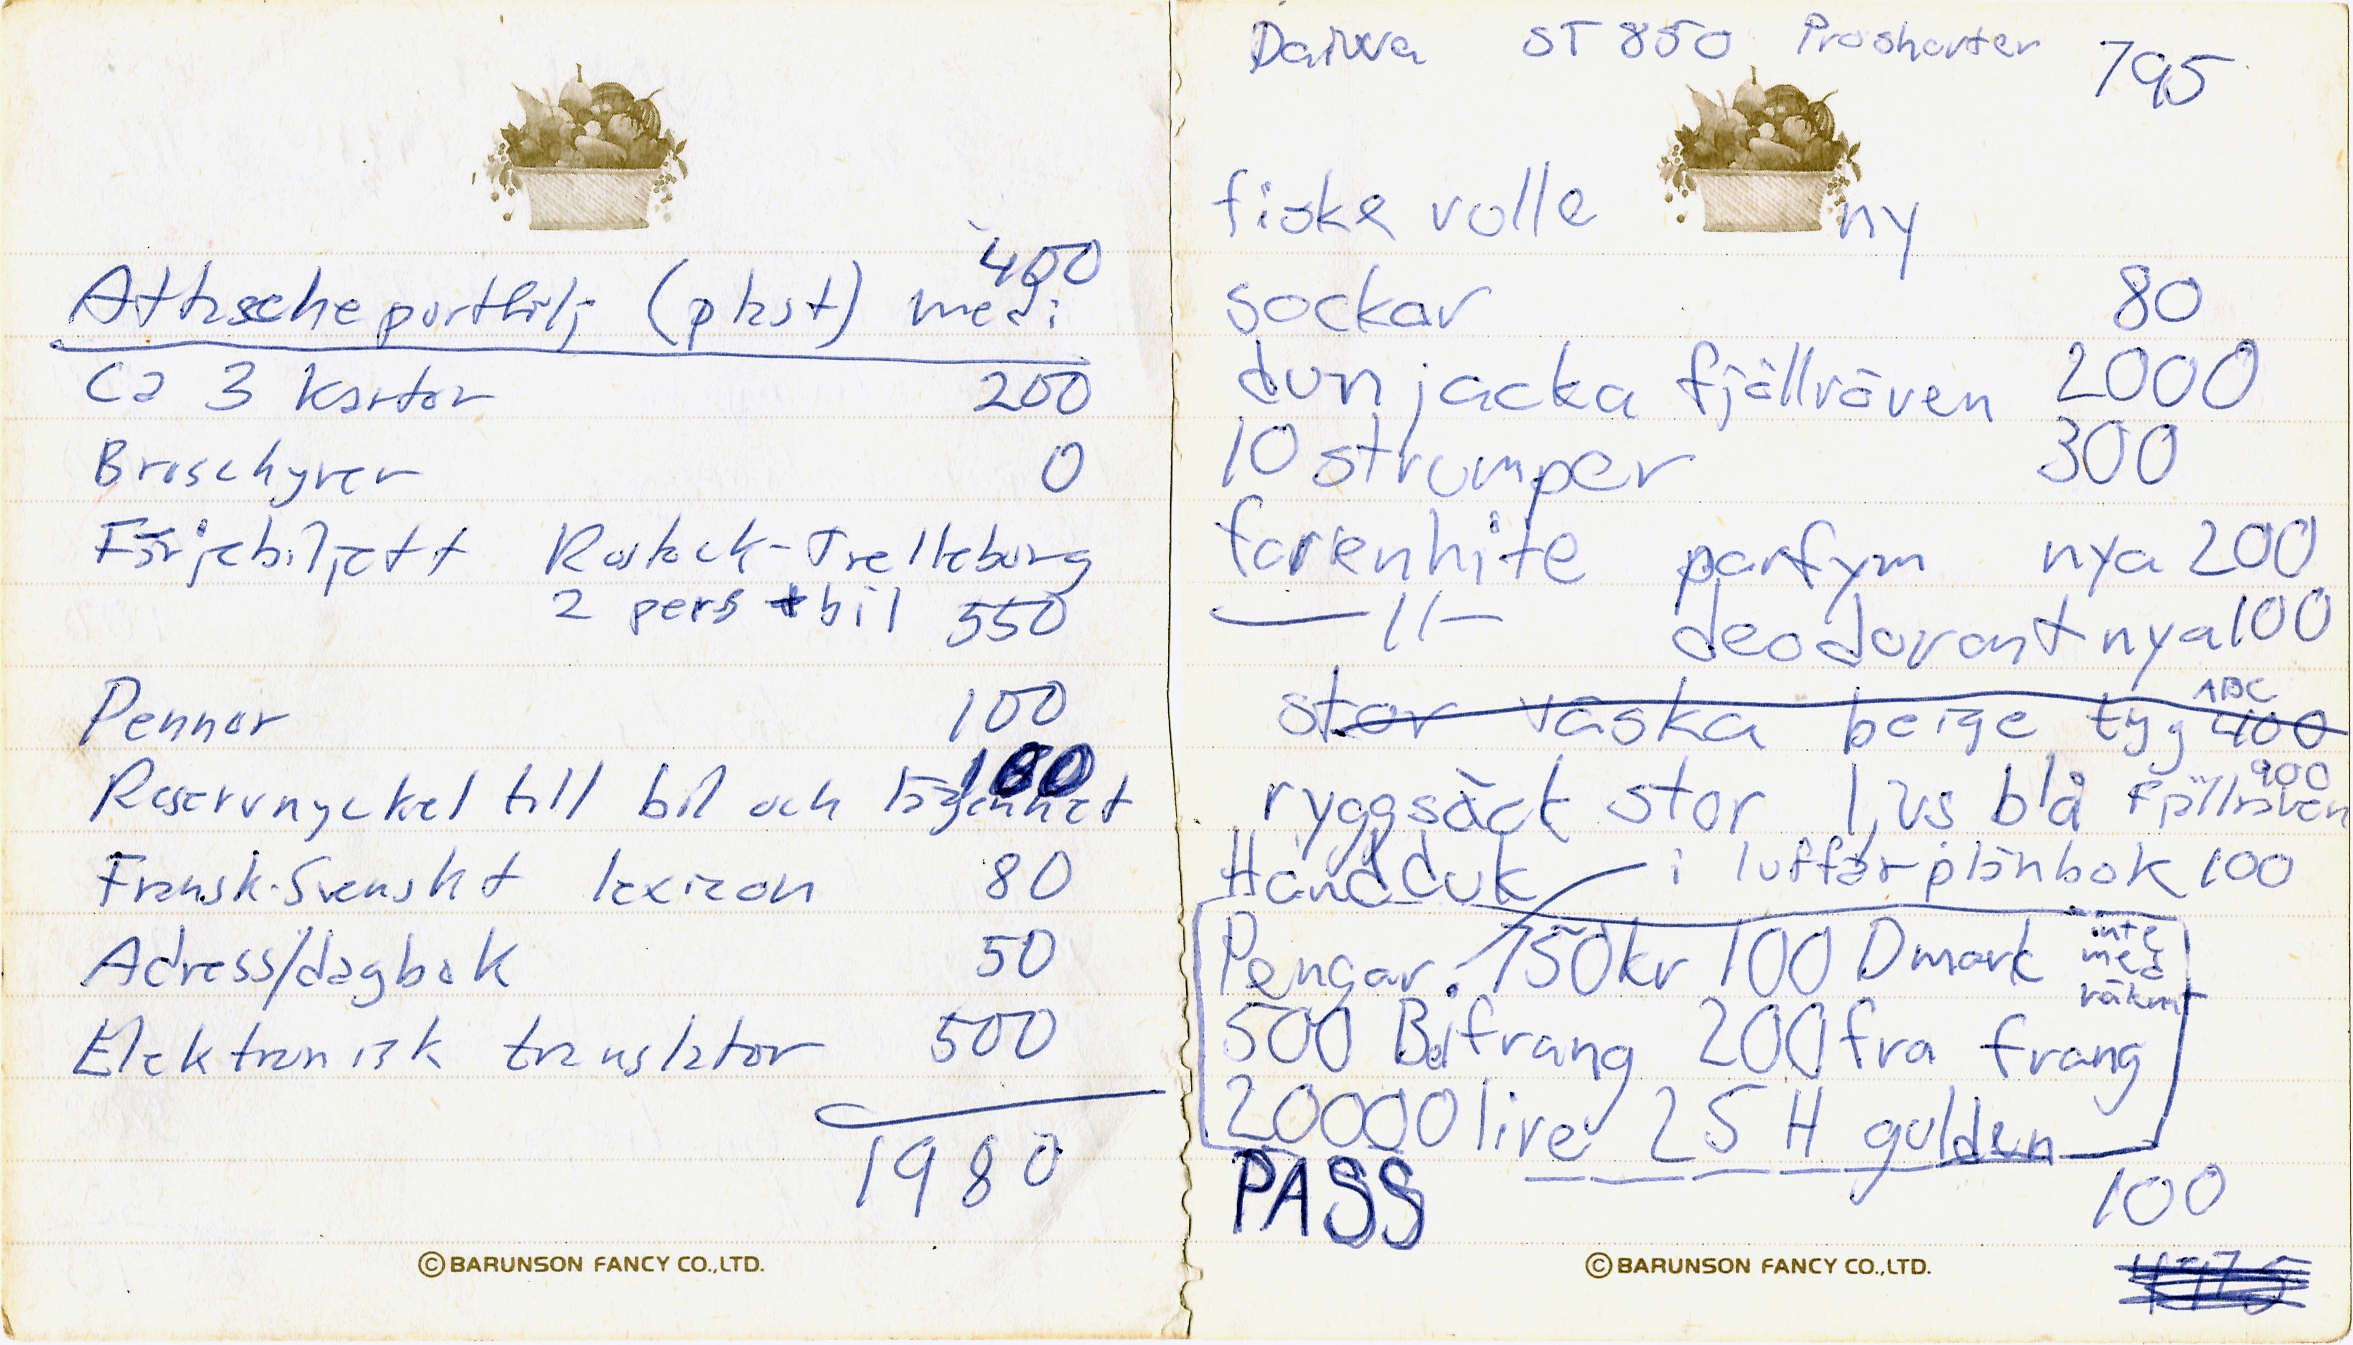 400
Attascheportfölj (plast) med:
Ca 3 kartor 200
Broschyrer 0
Färjebiljett Rostock-Trelleborg
2 pers + bil 550
Pennor 100
180
Reservnyckel till bil och lägenhet
Fransk-Svenskt lexicon 80
Adress/dagbok 50
Elektronisk translator 500
1980
© BARUNSON FANCY CO.,LTD.
Daiwa ST 850 Proshorter 795
fiske rolle ny
sockar 80
dun jacka fjällräven 2000
10 strumper 300
farenhite parfym nya 200
—//— deodorant nya 100
ABC
stor väska beige tyg 400
900
ryggsäck stor ljus blå Fjällräven
Handduk i luffar plånbok 100
Pengar. 750kr 100 Dmark inte
med
räknat
500 Belfrang 200 fra frang
20000 lire 25 H gulden
PASS 100
© BARUNSON FANCY CO.,LTD.